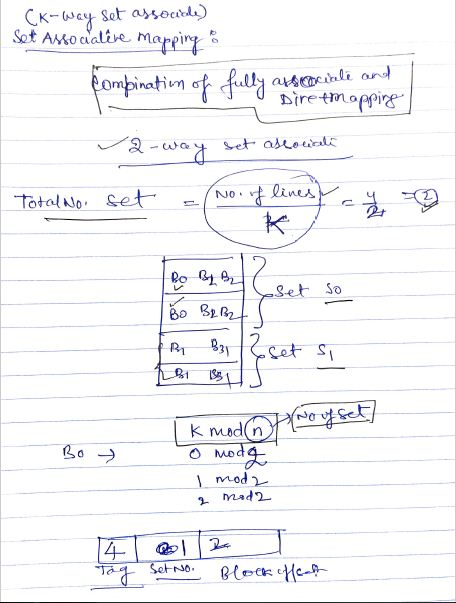 (K-way set associate)
Set Associative Mapping :
Combination of fully associate and
Diret mapping
2-way set associati
Total No. set = No. of lines / K = 4/2 = 2
B0 B2 B2
B0 B2 B2
Set S0
B1 B31
B1 B31
Set S1
K mod n → No of set
B0 → 0 mod 2
1 mod 2
2 mod 2
4 1 2
Tag Set No. Block offset